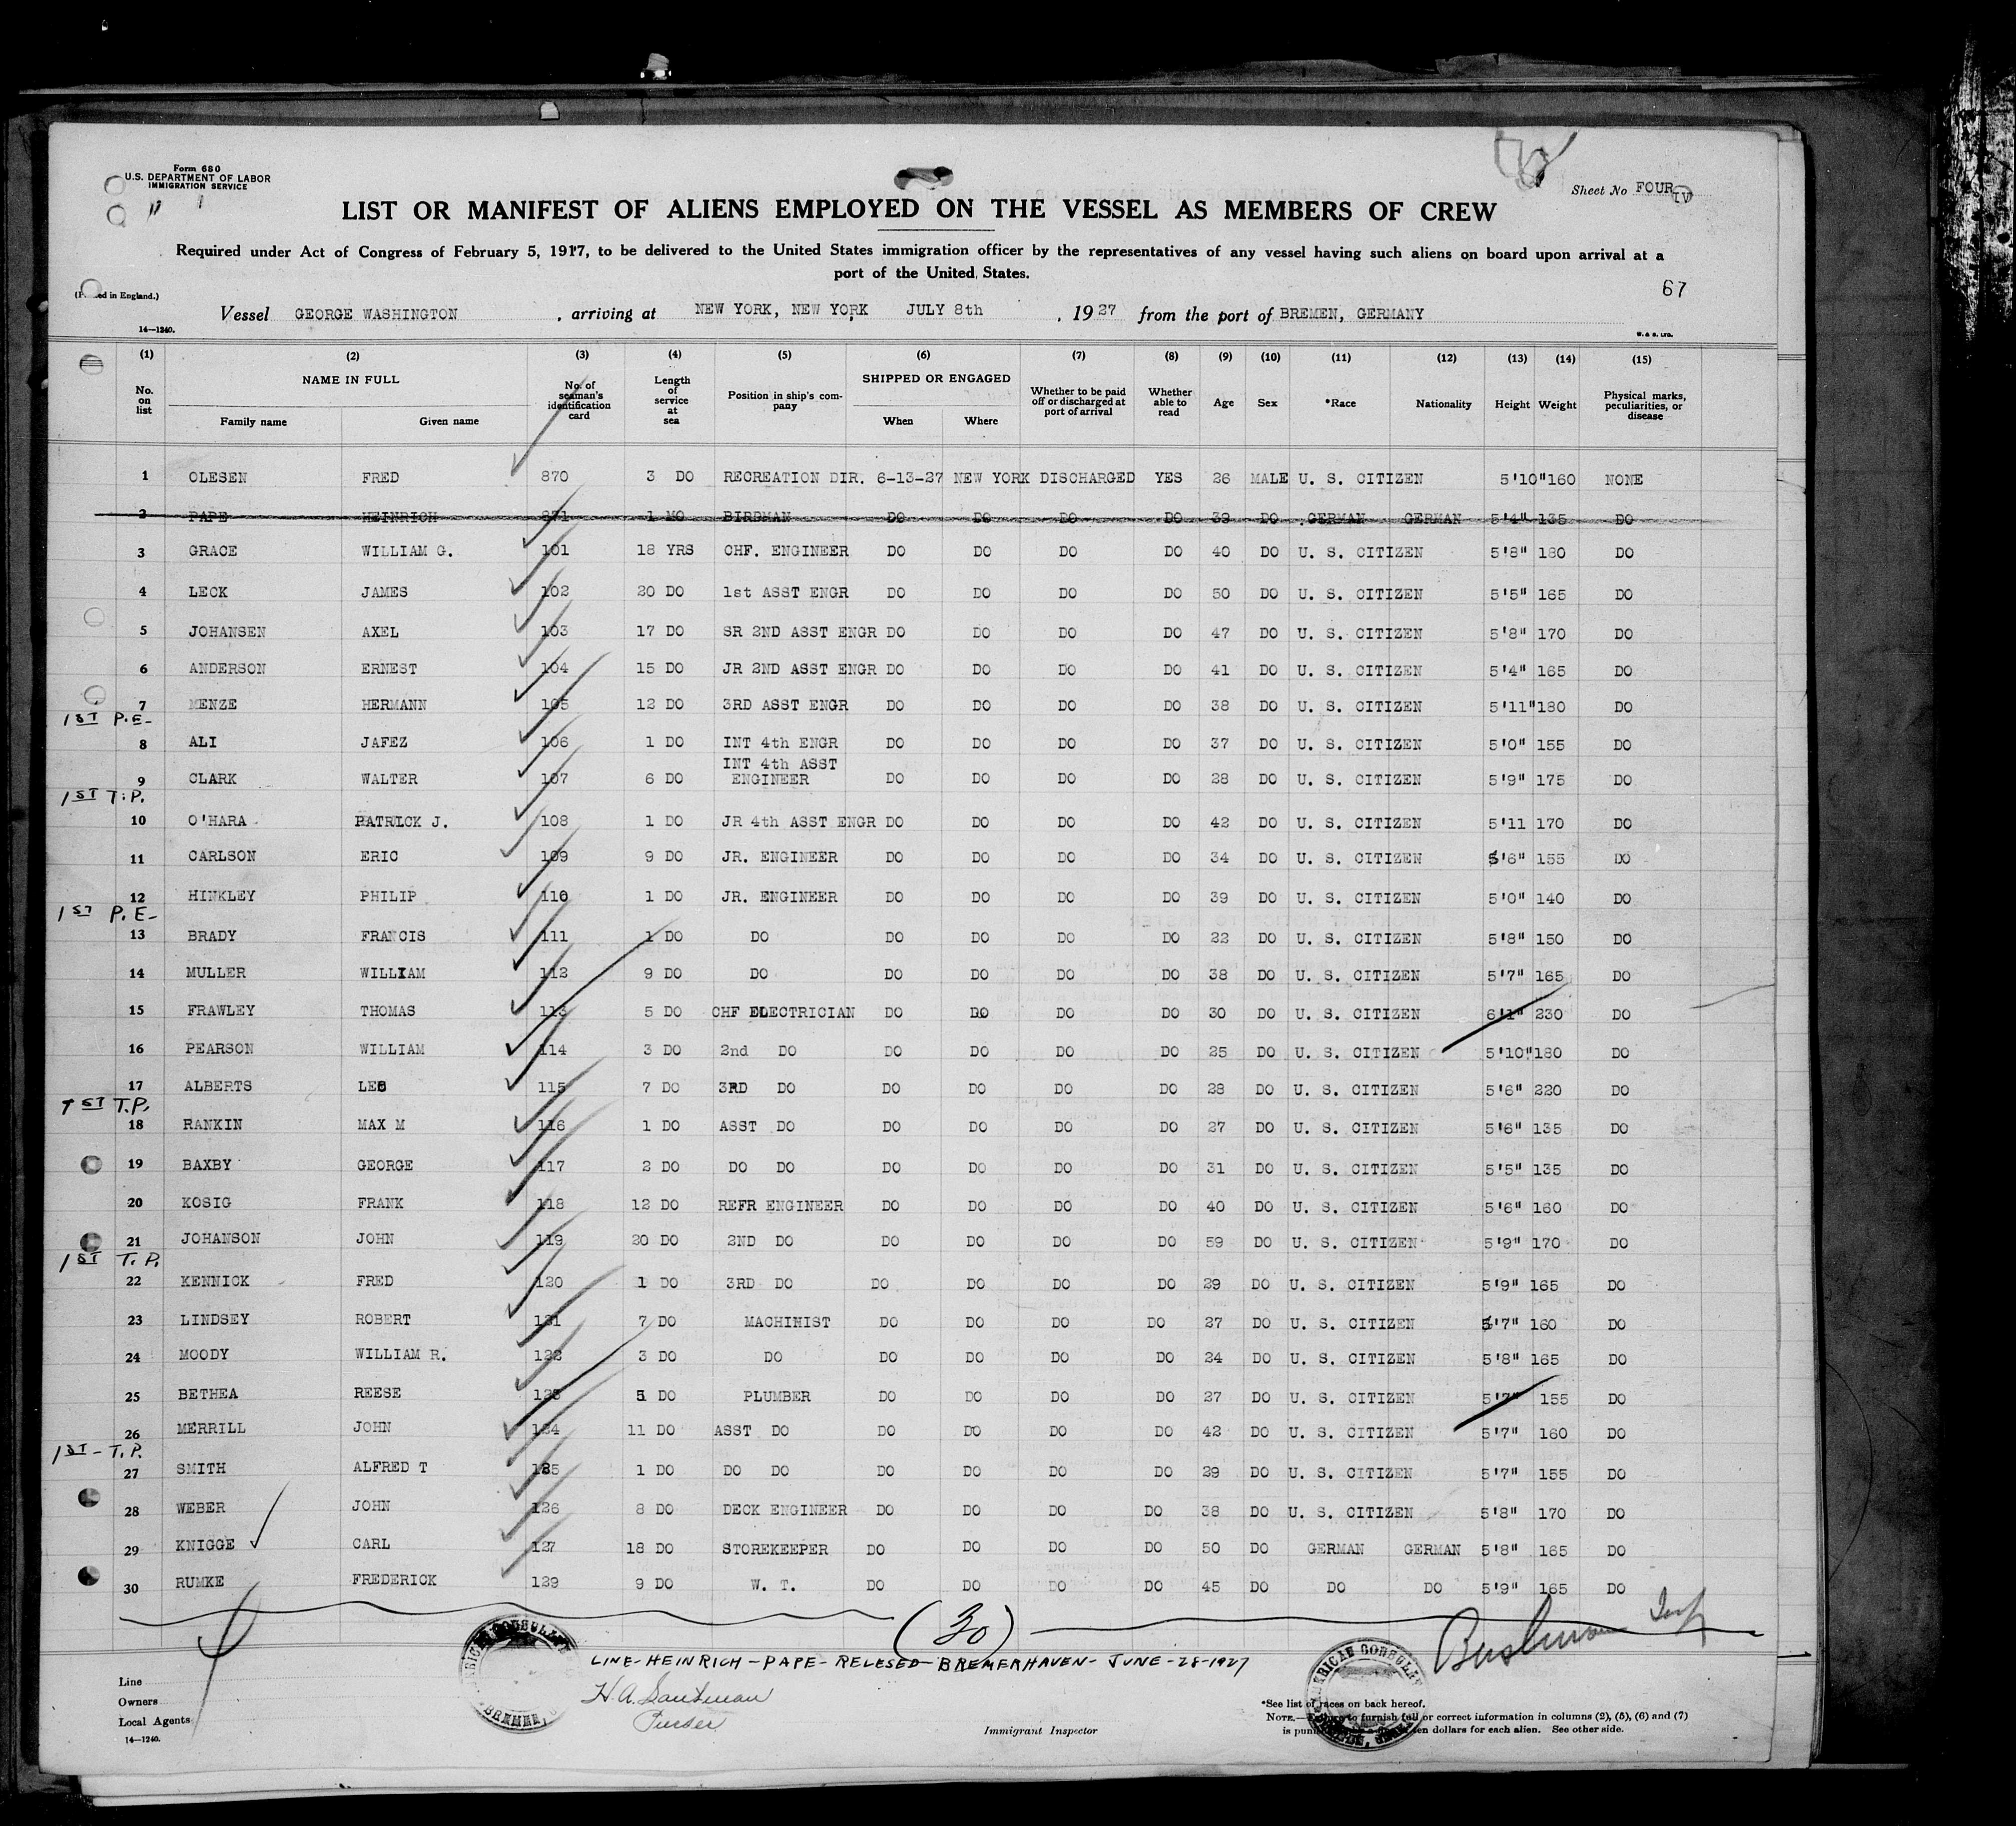 Form 680
U.S. DEPARTMENT OF LABOR
IMMIGRATION SERVICE
Sheet No FOUR IV
LIST OR MANIFEST OF ALIENS EMPLOYED ON THE VESSEL AS MEMBERS OF CREW
Required under Act of Congress of February 5, 1917, to be delivered to the United States immigration officer by the representatives of any vessel having such aliens on board upon arrival at a
port of the United States.
67
(Printed in England.)
Vessel GEORGE WASHINGTON , arriving at NEW YORK, NEW YORK JULY 8th , 1927 from the port of BREMEN, GERMANY
14—1240.
W. & S. LTD.
(1) (2) (3) (4) (5) (6) (7) (8) (9) (10) (11) (12) (13) (14) (15)
No. on list NAME IN FULL Family name Given name No. of seaman's identification card Length of service at sea Position in ship's company SHIPPED OR ENGAGED When Where Whether to be paid off or discharged at port of arrival Whether able to read Age Sex *Race Nationality Height Weight Physical marks, peculiarities, or disease
1 OLESEN FRED 870 3 DO RECREATION DIR. 6-13-27 NEW YORK DISCHARGED YES 26 MALE U. S. CITIZEN 5'10" 160 NONE
2 PAPE HEINRICH 871 1 MO BIRDMAN DO DO DO DO 39 DO GERMAN GERMAN 5'4" 135 DO
3 GRACE WILLIAM G. 101 18 YRS CHF. ENGINEER DO DO DO DO 40 DO U. S. CITIZEN 5'8" 180 DO
4 LECK JAMES 102 20 DO 1st ASST ENGR DO DO DO DO 50 DO U. S. CITIZEN 5'5" 165 DO
5 JOHANSEN AXEL 103 17 DO SR 2ND ASST ENGR DO DO DO DO 47 DO U. S. CITIZEN 5'8" 170 DO
6 ANDERSON ERNEST 104 15 DO JR 2ND ASST ENGR DO DO DO DO 41 DO U. S. CITIZEN 5'4" 165 DO
7 MENZE HERMANN 105 12 DO 3RD ASST ENGR DO DO DO DO 38 DO U. S. CITIZEN 5'11" 180 DO
1ST P.E-
8 ALI JAFEZ 106 1 DO INT 4th ENGR DO DO DO DO 37 DO U. S. CITIZEN 5'0" 155 DO
9 CLARK WALTER 107 6 DO INT 4th ASST ENGINEER DO DO DO DO 28 DO U. S. CITIZEN 5'9" 175 DO
1ST T.P.
10 O'HARA PATRICK J. 108 1 DO JR 4th ASST ENGR DO DO DO DO 42 DO U. S. CITIZEN 5'11 170 DO
11 CARLSON ERIC 109 9 DO JR. ENGINEER DO DO DO DO 34 DO U. S. CITIZEN 5'6" 155 DO
12 HINKLEY PHILIP 110 1 DO JR. ENGINEER DO DO DO DO 39 DO U. S. CITIZEN 5'0" 140 DO
1ST P.E-
13 BRADY FRANCIS 111 1 DO DO DO DO DO DO 22 DO U. S. CITIZEN 5'8" 150 DO
14 MULLER WILLIAM 112 9 DO DO DO DO DO DO 38 DO U. S. CITIZEN 5'7" 165 DO
15 FRAWLEY THOMAS 113 5 DO CHF ELECTRICIAN DO DO DO DO 30 DO U. S. CITIZEN 6'1" 230 DO
16 PEARSON WILLIAM 114 3 DO 2nd DO DO DO DO DO 25 DO U. S. CITIZEN 5'10" 180 DO
17 ALBERTS LEO 115 7 DO 3RD DO DO DO DO DO 28 DO U. S. CITIZEN 5'6" 220 DO
1ST T.P.
18 RANKIN MAX M 116 1 DO ASST DO DO DO DO DO 27 DO U. S. CITIZEN 5'6" 135 DO
19 BAXBY GEORGE 117 2 DO DO DO DO DO DO DO 31 DO U. S. CITIZEN 5'5" 135 DO
20 KOSIG FRANK 118 12 DO REFR ENGINEER DO DO DO DO 40 DO U. S. CITIZEN 5'6" 160 DO
21 JOHANSON JOHN 119 20 DO 2ND DO DO DO DO DO 59 DO U. S. CITIZEN 5'9" 170 DO
1ST T.P.
22 KENNICK FRED 120 1 DO 3RD DO DO DO DO DO 29 DO U. S. CITIZEN 5'9" 165 DO
23 LINDSEY ROBERT 121 7 DO MACHINIST DO DO DO DO 27 DO U. S. CITIZEN 5'7" 160 DO
24 MOODY WILLIAM R. 122 3 DO DO DO DO DO DO 24 DO U. S. CITIZEN 5'8" 165 DO
25 BETHEA REESE 123 5 DO PLUMBER DO DO DO DO 27 DO U. S. CITIZEN 5'7" 155 DO
26 MERRILL JOHN 124 11 DO ASST DO DO DO DO DO 42 DO U. S. CITIZEN 5'7" 160 DO
1ST-T.P.
27 SMITH ALFRED T 125 1 DO DO DO DO DO DO DO 29 DO U. S. CITIZEN 5'7" 155 DO
28 WEBER JOHN 126 8 DO DECK ENGINEER DO DO DO DO 38 DO U. S. CITIZEN 5'8" 170 DO
29 KNIGGE CARL 127 18 DO STOREKEEPER DO DO DO DO 50 DO GERMAN GERMAN 5'8" 165 DO
30 RUMKE FREDERICK 129 9 DO W. T. DO DO DO DO 45 DO DO DO 5'9" 165 DO
(30)
LINE-HEINRICH-PAPE-RELESED-BREMERHAVEN-JUNE-28-1927
Line
Owners
Local Agents
14—1240.
H.A.
Purser
Immigrant Inspector
*See list of races on back hereof.
NOTE.— to furnish full or correct information in columns (2), (5), (6) and (7)
is ten dollars for each alien. See other side.